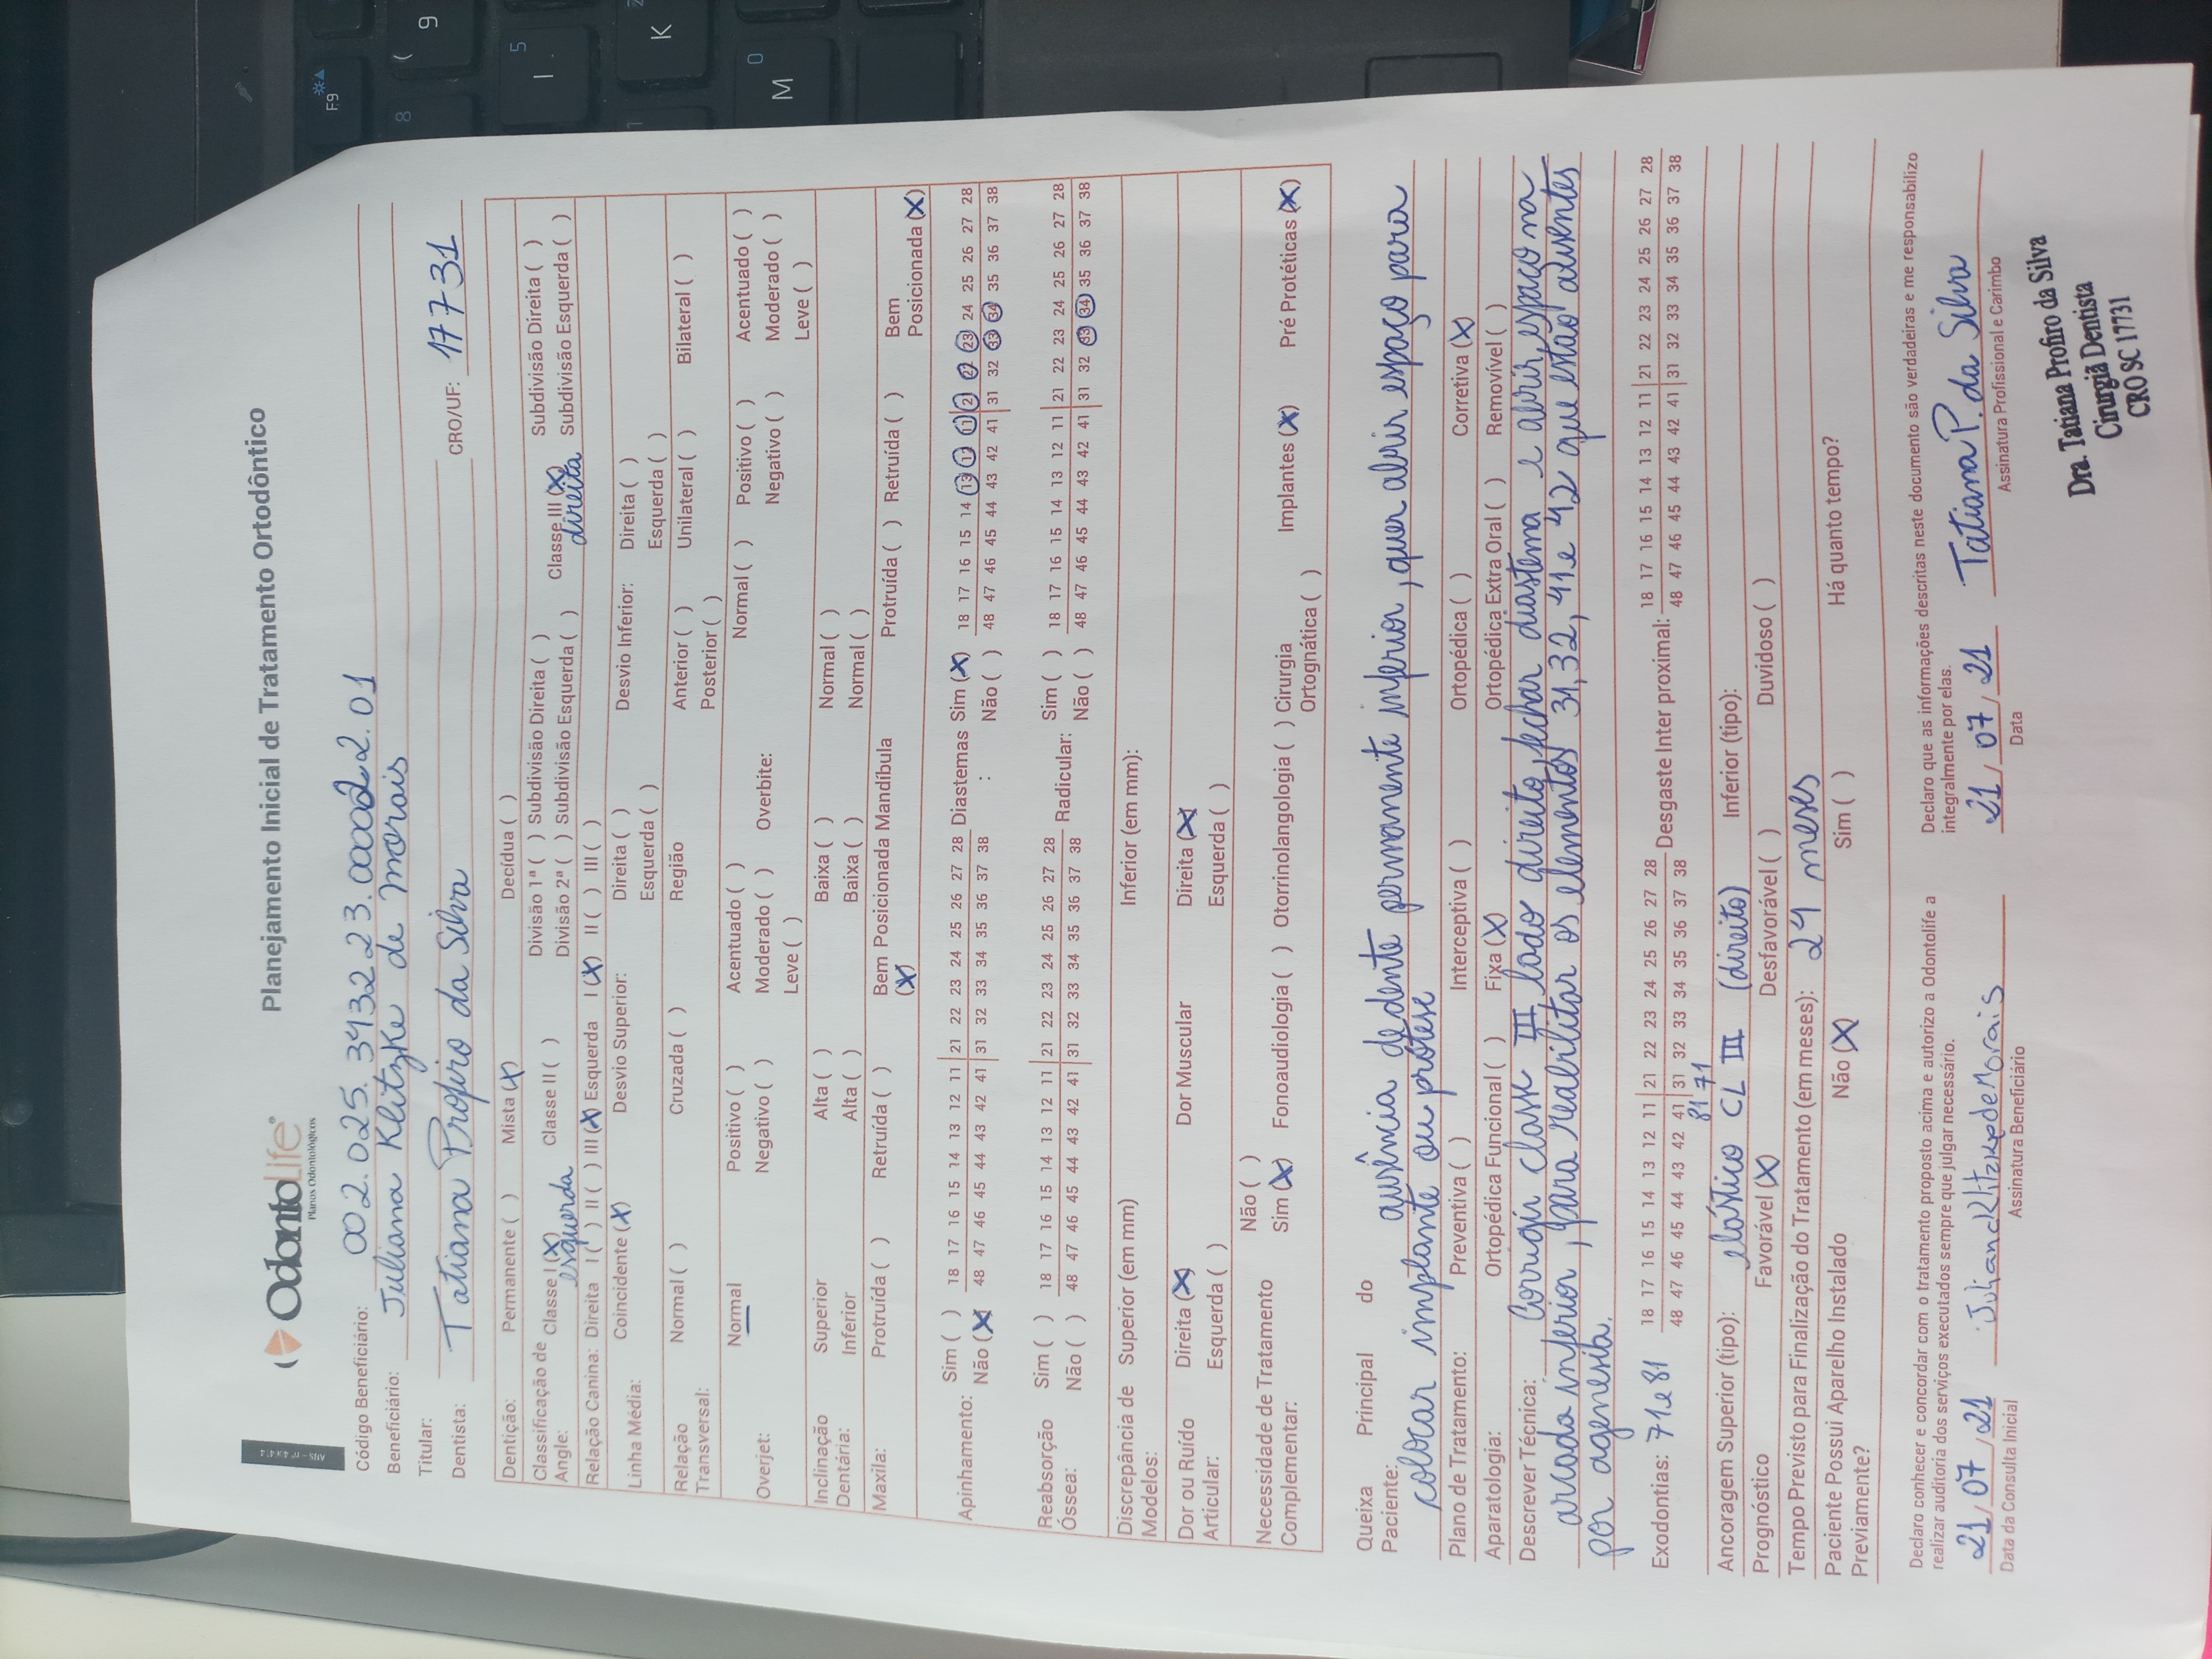 ANS - nº 40614
OdontoLife®
Planos Odontológicos
Planejamento Inicial de Tratamento Ortodôntico
Código Beneficiário: 002.025.343223.000022.01
Beneficiário: Juliana Klitzke de morais
Titular:
Dentista: Tatiana Profiro da Silva CRO/UF: 17731
Dentição: Permanente ( ) Mista (X) Decídua ( )
Classificação de Angle: Classe I (X) esquerda Classe II ( ) Divisão 1ª ( ) Subdivisão Direita ( ) Classe III (X) direita Subdivisão Direita ( )
Divisão 2ª ( ) Subdivisão Esquerda ( ) Subdivisão Esquerda ( )
Relação Canina: Direita I ( ) II ( ) III (X) Esquerda I (X) II ( ) III ( )
Linha Média: Coincidente (X) Desvio Superior: Direita ( ) Desvio Inferior: Direita ( )
Esquerda ( ) Esquerda ( )
Relação Transversal: Normal ( ) Cruzada ( ) Região Anterior ( ) Unilateral ( ) Bilateral ( )
Posterior ( )
Overjet: Normal Positivo ( ) Acentuado ( ) Overbite: Normal ( ) Positivo ( ) Acentuado ( )
Negativo ( ) Moderado ( ) Negativo ( ) Moderado ( )
Leve ( ) Leve ( )
Inclinação Dentária: Superior Alta ( ) Baixa ( ) Normal ( )
Inferior Alta ( ) Baixa ( ) Normal ( )
Maxila: Protruída ( ) Retruída ( ) Bem Posicionada (X) Mandíbula Protruída ( ) Retruída ( ) Bem Posicionada (X)
Apinhamento: Sim ( ) 18 17 16 15 14 13 12 11 21 22 23 24 25 26 27 28 Diastemas : Sim (X) 18 17 16 15 14 13 12 11 21 22 23 24 25 26 27 28
Não (X) 48 47 46 45 44 43 42 41 31 32 33 34 35 36 37 38 Não ( ) 48 47 46 45 44 43 42 41 31 32 33 34 35 36 37 38
Reabsorção Óssea: Sim ( ) 18 17 16 15 14 13 12 11 21 22 23 24 25 26 27 28 Radicular: Sim ( ) 18 17 16 15 14 13 12 11 21 22 23 24 25 26 27 28
Não ( ) 48 47 46 45 44 43 42 41 31 32 33 34 35 36 37 38 Não ( ) 48 47 46 45 44 43 42 41 31 32 33 34 35 36 37 38
Discrepância de Modelos: Superior (em mm) Inferior (em mm):
Dor ou Ruído Articular: Direita (X) Dor Muscular Direita (X)
Esquerda ( ) Esquerda ( )
Necessidade de Tratamento Complementar: Não ( )
Sim (X) Fonoaudiologia ( ) Otorrinolangologia ( ) Cirurgia Ortognática ( ) Implantes (X) Pré Protéticas (X)
Queixa Principal do Paciente: ausência de dente permanente inferior, quer abrir espaço para
colocar implante ou prótese
Plano de Tratamento: Preventiva ( ) Interceptiva ( ) Ortopédica ( ) Corretiva (X)
Aparatologia: Ortopédica Funcional ( ) Fixa (X) Ortopédica Extra Oral ( ) Removível ( )
Descrever Técnica: Corrigir classe III lado direito, fechar diastema e abrir espaço na
arcada inferior, para reabilitar os elementos 31, 32, 41 e 42 que estão ausentes
por agenesia.
Exodontias: 71 e 81 18 17 16 15 14 13 12 11 21 22 23 24 25 26 27 28 Desgaste Inter proximal: 18 17 16 15 14 13 12 11 21 22 23 24 25 26 27 28
48 47 46 45 44 43 42 41 31 32 33 34 35 36 37 38 48 47 46 45 44 43 42 41 31 32 33 34 35 36 37 38
81 71
Ancoragem Superior (tipo): elástico CL III (direito) Inferior (tipo):
Prognóstico Favorável (X) Desfavorável ( ) Duvidoso ( )
Tempo Previsto para Finalização do Tratamento (em meses): 24 meses
Paciente Possui Aparelho Instalado Previamente? Não (X) Sim ( ) Há quanto tempo?
Declaro conhecer e concordar com o tratamento proposto acima e autorizo a Odontolife a
realizar auditoria dos serviços executados sempre que julgar necessário.
21/07/21 Juliana Klitzke de Morais
Data da Consulta Inicial Assinatura Beneficiário
Declaro que as informações descritas neste documento são verdadeiras e me responsabilizo
integralmente por elas.
21/07/21 Tatiana P. da Silva
Data Assinatura Profissional e Carimbo
Dra. Tatiana Profiro da Silva
Cirurgiã Dentista
CRO SC 17731
F9
8 ( 9
I 5
K
M 0